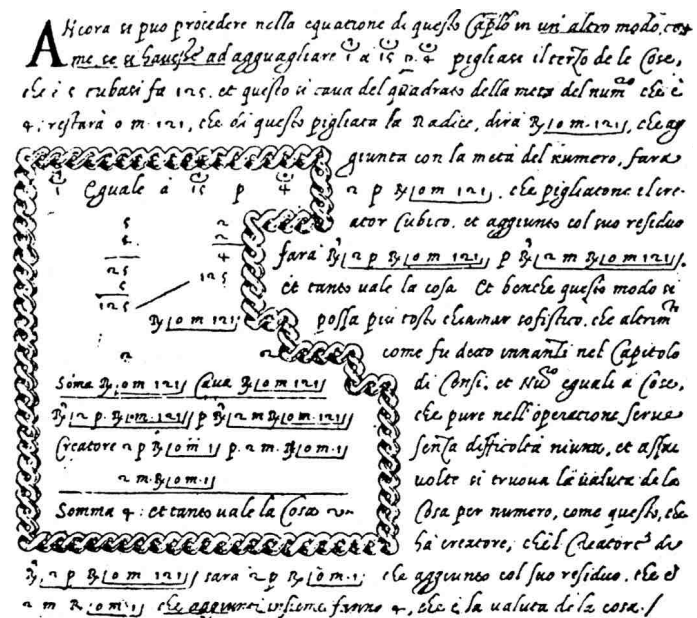 Ancora si puo procedere nella equatione di questo Capitolo in un'altro modo, co-
me se si havesse ad agguagliare 1 a 15 p. 4 pigliasi il terzo de le Cose,
che è 5 cubasi fa 125. et questo si cava del quadrato della metà del num.ro che è
4: restarà 0 m. 121, che di questo pigliata la Radice, dirà R⌊0 m. 121⌋, che ag
giunta con la metà del numero, farà
2 p R⌊0 m 121⌋. che pigliatone il cre-
ator Cubico. et aggiunto col suo residuo
farà R³⌊2 p R⌊0 m 121⌋⌋ p R³⌊2 m R⌊0 m 121⌋⌋.
Et tanto vale la cosa Et benche questo modo si
possa più tosto chiamar sofistico. che altrim.ti
come fu detto innanti nel Capitolo
di Censi, et Nu.ro eguali a Cose,
che pure nell'operatione serve
senza difficoltà niuna, et assai
volte si truova la valuta de la
Cosa per numero, come questo, che
ha creatore, che'l Creatore di
R³⌊2 p R⌊0 m 121⌋⌋ sarà 2 p R⌊0 m. 1⌋ che aggiunto col suo residuo. che è
2 m R⌊0 m 1⌋ che aggiunti insieme fanno 4, che è la valuta de la cosa./
1 Eguale à 15 p 4
5 2
5 2
25 4
5 125
125
R⌊0 m 121⌋
2 2
Soma R⌊0 m 121⌋ Cava R⌊0 m 121⌋
R³⌊2 p. R⌊0 m. 121⌋⌋ p R³⌊2 m R⌊0 m 121⌋⌋
Creatore 2 p R⌊0 m 1⌋ p. 2 m. R⌊0 m. 1⌋
2 m. R⌊0 m. 1⌋
Somma 4: et tanto vale la Cosa